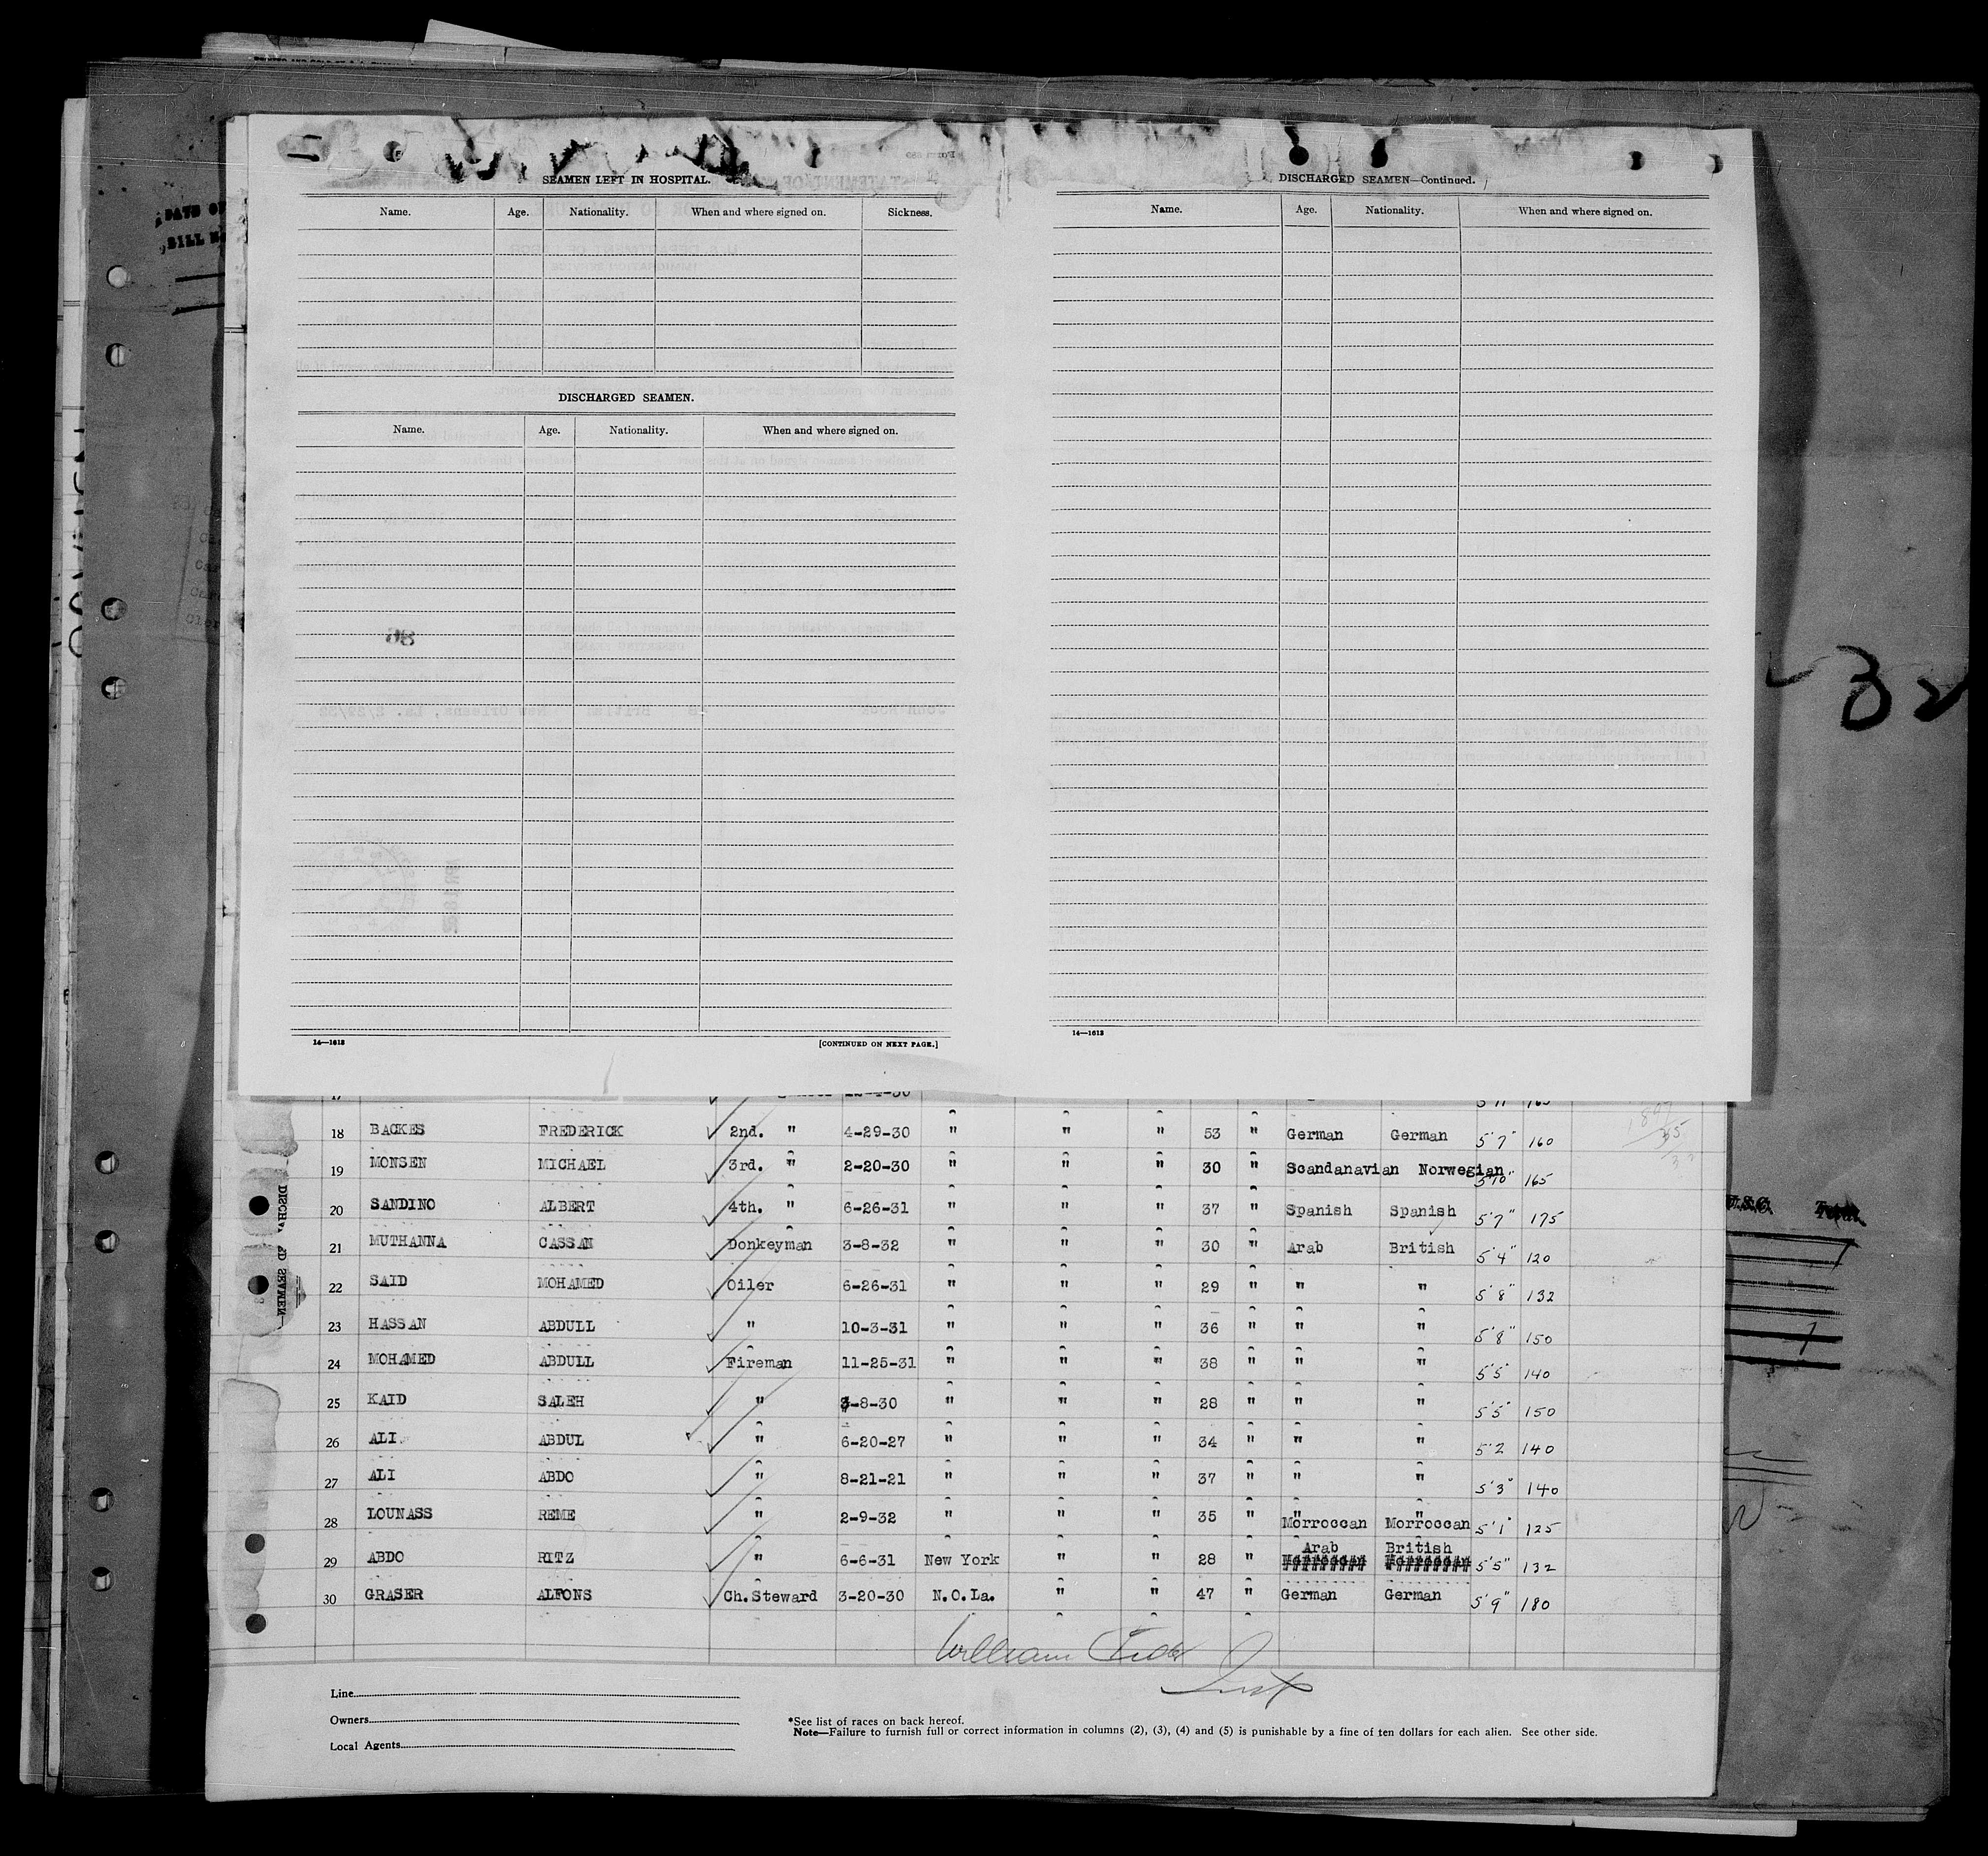 SEAMEN LEFT IN HOSPITAL.
Name. Age. Nationality. When and where signed on. Sickness.
DISCHARGED SEAMEN.
Name. Age. Nationality. When and where signed on.
14—1613 [CONTINUED ON NEXT PAGE.]
DISCHARGED SEAMEN—Continued.
Name. Age. Nationality. When and where signed on.
14—1613
32
17 5'11 165
18 BACKES FREDERICK 2nd. " 4-29-30 " " " 53 " German German 5'7" 160
19 MONSEN MICHAEL 3rd. " 2-20-30 " " " 30 " Scandanavian Norwegian 5'10" 165
20 SANDINO ALBERT 4th. " 6-26-31 " " " 37 " Spanish Spanish 5'7" 175
21 MUTHANNA CASSAN Donkeyman 3-8-32 " " " 30 " Arab British 5'4" 120
22 SAID MOHAMED Oiler 6-26-31 " " " 29 " " " 5'8" 132
23 HASSAN ABDULL " 10-3-31 " " " 36 " " " 5'8" 150
24 MOHAMED ABDULL Fireman 11-25-31 " " " 38 " " " 5'5" 140
25 KAID SALEH " 3-8-30 " " " 28 " " " 5'5" 150
26 ALI ABDUL " 6-20-27 " " " 34 " " " 5'2 140
27 ALI ABDO " 8-21-21 " " " 37 " " " 5'3" 140
28 LOUNASS REME " 2-9-32 " " " 35 " Morroccan Morroccan 5'1" 125
29 ABDO RITZ " 6-6-31 New York " " 28 " Arab British 5'5" 132
30 GRASER ALFONS Ch.Steward 3-20-30 N.O.La. " " 47 " German German 5'9" 180
William
Line
Owners
Local Agents
*See list of races on back hereof.
Note—Failure to furnish full or correct information in columns (2), (3), (4) and (5) is punishable by a fine of ten dollars for each alien. See other side.